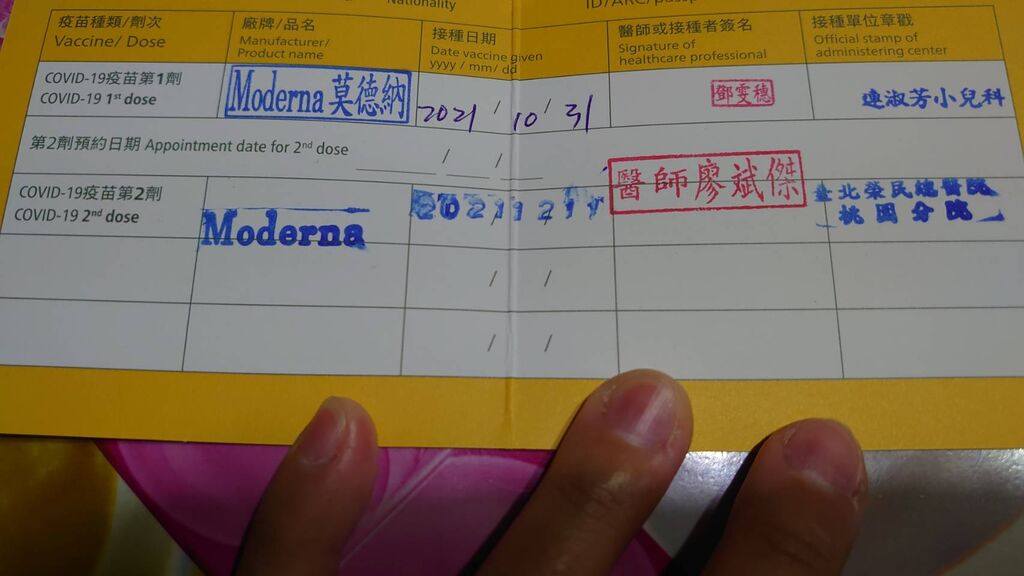 Nationality
疫苗種類/劑次 廠牌/品名 接種日期 醫師或接種者簽名 接種單位章戳
Vaccine/ Dose Manufacturer/ Date vaccine given Signature of Official stamp of
Product name yyyy / mm/ dd healthcare professional administering center
COVID-19疫苗第1劑
COVID-19 1st dose
Moderna 莫德納
2021 / 10 / 31
鄧雯穗
連淑芳小兒科
第2劑預約日期 Appointment date for 2nd dose / /
COVID-19疫苗第2劑
COVID-19 2nd dose
Moderna
醫師廖斌傑
臺北榮民總醫院
桃園分院
/ /
/ /